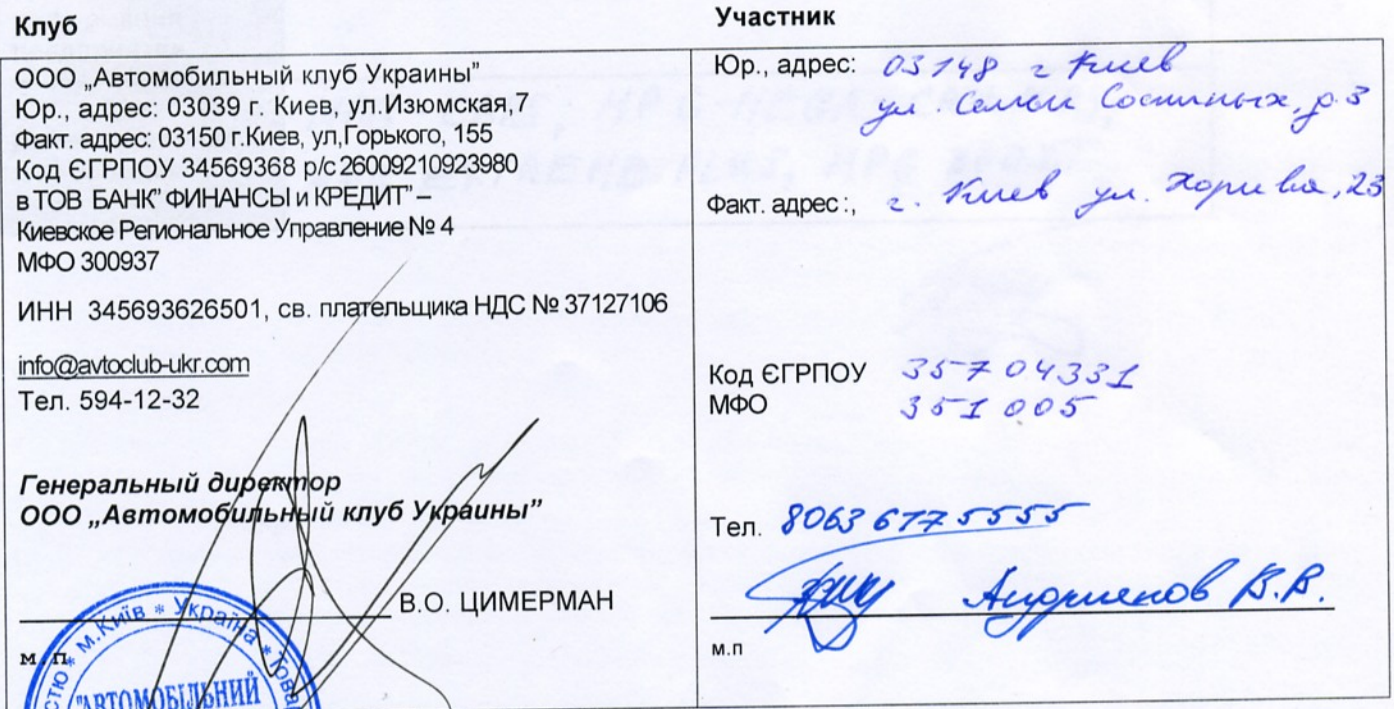 Клуб
ООО „Автомобильный клуб Украины”
Юр., адрес: 03039 г. Киев, ул.Изюмская,7
Факт. адрес: 03150 г.Киев, ул,Горького, 155
Код ЄГРПОУ 34569368 р/с 26009210923980
в ТОВ БАНК” ФИНАНСЫ и КРЕДИТ” –
Киевское Региональное Управление № 4
МФО 300937
ИНН 345693626501, св. плательщика НДС № 37127106
info@avtoclub-ukr.com
Тел. 594-12-32
Генеральный директор
ООО „Автомобильный клуб Украины”
В.О. ЦИМЕРМАН
м.п
м.Київ * Україна *
"АВТОМОБІЛЬНИЙ
Участник
Юр., адрес: 03148 г Киев
ул. Семьи Сосниных, д. 3
Факт. адрес :, г. Киев ул. Хорива, 23
Код ЄГРПОУ 35704331
МФО 351005
Тел. 8063 6775555
Андриенов В.В.
м.п